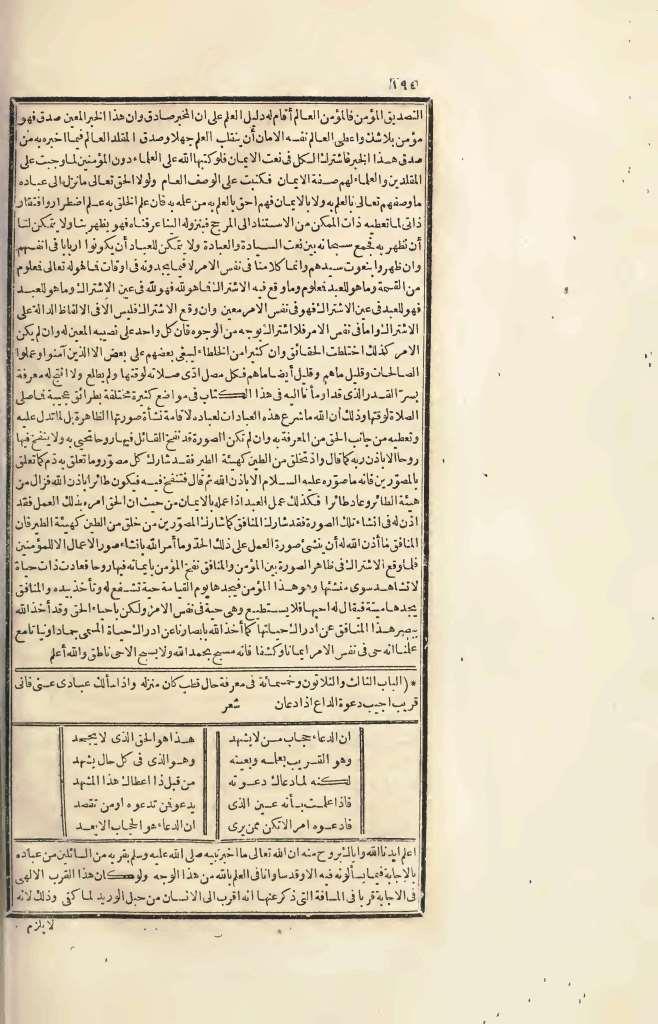 ١٩٥
التصديق المؤمن فالمؤمن العالم أقام له دليل العلم على ان المخبر صادق وان هذا الخبر المعين صدق فهو
مؤمن بلا شك واعطى العالم نفسه الامان أن ينقلب العلم جهلا وصدق المقلد العالم فيما اخبره به من
صدق هذا الخبر فاشترك الكل فى نعت الايمان فلو كتبها الله على العلماء دون المؤمنين لما وجبت على
المقلدين والعلماء لهم صفة الايمان فكتبت على الوصف العام ولولا الحق تعالى ما نزل الى عباده
ما وصفهم تعالى بالعلم به ولا بالايمان فهم احق بالعلم به من علمه به فان علم الخلق به علم اضطرار وافتقار
ذاتى لما تعطيه ذات الممكن من الاستناد الى المرجح فبنزوله الينا عرفناه فهو يظهر بنا ولا يتمكن لنا
أن نظهر به فجمع سبحانه بين نعت السيادة والعبادة ولا يتمكن للعباد أن يكونوا اربابا فى انفسهم
وان ظهروا بنعوت سيدهم وانما كلامنا فى نفس الامر لا فيما يجدونه فى اوقات فما هو له تعالى فعلوم
من القسمة وما هو للعبد فعلوم وما وقع فيه الاشتراك فما هو لله فهو لله فى عين الاشتراك وما هو للعبد
فهو للعبد فى عين الاشتراك فهو فى نفس الامر معين وان وقع الاشتراك فليس الا فى الالفاظ الدالة على
الاشتراك واما فى نفس الامر فلا اشتراك بوجه من الوجوه فان كل واحد على نصيبه المعين له وان لم يكن
الامر كذلك اختلطت الحقائق وان كثيرا من الخلطاء ليبغى بعضهم على بعض الا الذين آمنوا وعملوا
الصالحات وقليل ما هم وقليل أيضا ما هم فكل مصل ادّى صلاته لوقتها ولم يطلع ولا انتج له معرفة
بسرّ القدر الذى قد اومأنا اليه فى هذا الكتاب فى مواضع كثيرة مختلفة بطرائق عجيبة فما صلى
الصلاة لوقتها وذلك أن الله ما شرع هذه العبادات لعباده لاقامة نشأة صورتها الظاهرة بل لما تدل عليه
وتعطيه من جانب الحق من المعرفة به وان لم تكن الصورة قد نفخ القائل فيها روحا تحيى به ولا ينفخ فيها
روحا الا باذن ربه كما قال واذ تخلق من الطين كهيئة الطير فقد شارك كل مصوّر وما تعلق به ذم كما تعلق
بالمصوّرين فانه ما صوّره عليه السلام الا باذن الله ثم قال فتنفخ فيه فيكون طائرا باذن الله فزال من
هيئة الطائر وعاد طائرا فكذلك عمل العبد اذا عمله بالايمان من حيث ان الحق امره بذلك العمل فقد
اذن له فى انشاء تلك الصورة فقد شارك المنافق كما شارك المصوّرين من خلق من الطين كهيئة الطير فان
المنافق ما أذن الله له أن ينشئ صورة العمل على ذلك الحدّ وما أمر الله بانشاء صور الاعمال الا للمؤمنين
فلما وقع الاشتراك فى ظاهر الصورة بين المؤمن والمنافق نفخ المؤمن بايمانه فيها روحا فعادت ذات حياة
لا تشاهد سوى منشئها وهو هذا المؤمن فيجدها يوم القيامة حية تشفع له وتأخذ بيده والمنافق
يجدها ميتة فيقال له احيها فلا يستطيع وهى حية فى نفس الامر ولكن باحياء الحق وقد أخذ الله
ببصر هذا المنافق عن ادراك حياتها كما أخذ الله بابصارنا عن ادراك حياة المسمى جمادا ونباتا مع
علمنا انه حى فى نفس الامر ايمانا وكشفا فانه مسبح بحمد الله ولا يسبح الا حى ناطق والله أعلم
* (الباب الثالث والثلاثون وخمسمائة فى معرفة حال قطب كان منزله واذا سألك عبادى عنى فانى
قريب اجيب دعوة الداع اذا دعان شعر
ان الدعاء حجاب من لا يشهد هذا هو الحق الذى لا يجحد
وهو القريب بعلمه وبعينه وهو الذى فى كل حال يشهد
لكنه لما دعاك دعوته من قبل ذا اعطاك هذا المشهد
فاذا علمت بأنه عين الذى يدعو فمن تدعوه او من تقصد
فادعوه امر الا تكن ممن يرى ان الدعاء هو الحجاب الابعد
اعلم أيدنا الله واياك بروح منه ان الله تعالى ما اخبر نبيه صلى الله عليه وسلم بقربه من السائلين من عباده
بالاجابة فيما يسألونه فيه الا وقد ساوانا فى العلم بالله من هذا الوجه ولو كان هذا القرب الالهى
فى الاجابة قربا فى المسافة التى ذكر عنها انه اقرب الى الانسان من حبل الوريد لما كفى وذلك لانه
لا يلزم